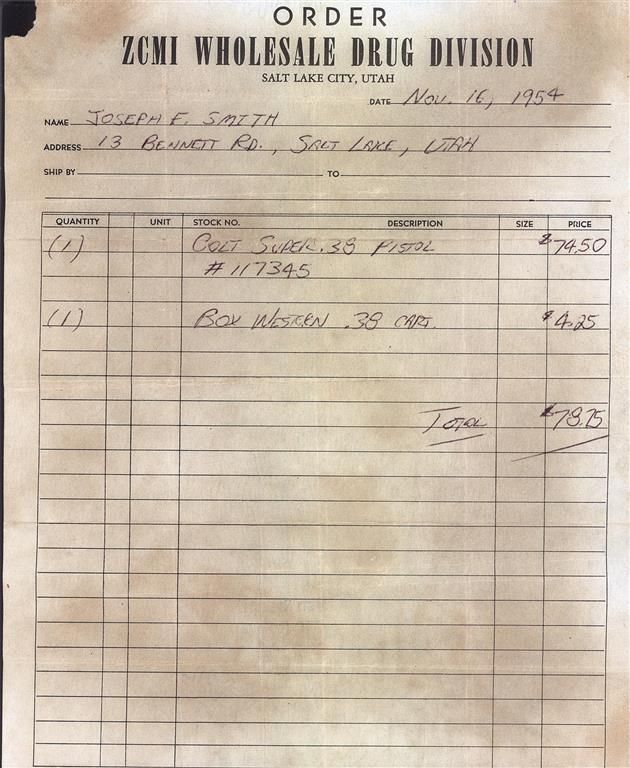 ORDER
ZCMI WHOLESALE DRUG DIVISION
SALT LAKE CITY, UTAH
DATE Nov. 16, 1954
NAME JOSEPH F. SMITH
ADDRESS 13 BENNETT RD., SALT LAKE, UTAH
SHIP BY TO
QUANTITY UNIT STOCK NO. DESCRIPTION SIZE PRICE
(1) COLT SUPER .38 PISTOL $74.50
# 117345
(1) BOX WESTERN .38 CART. $4.25
TOTAL $78.75